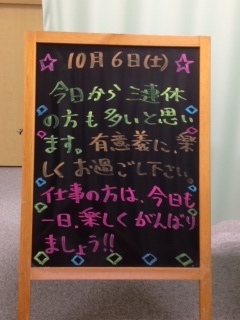 10月6日(土)
今日から 三連休
の方も多いと思い
ます。有意義に、楽
しくお過ごし下さい。
仕事の方は、今日も
一日、楽しくがんばり
ましょう!!